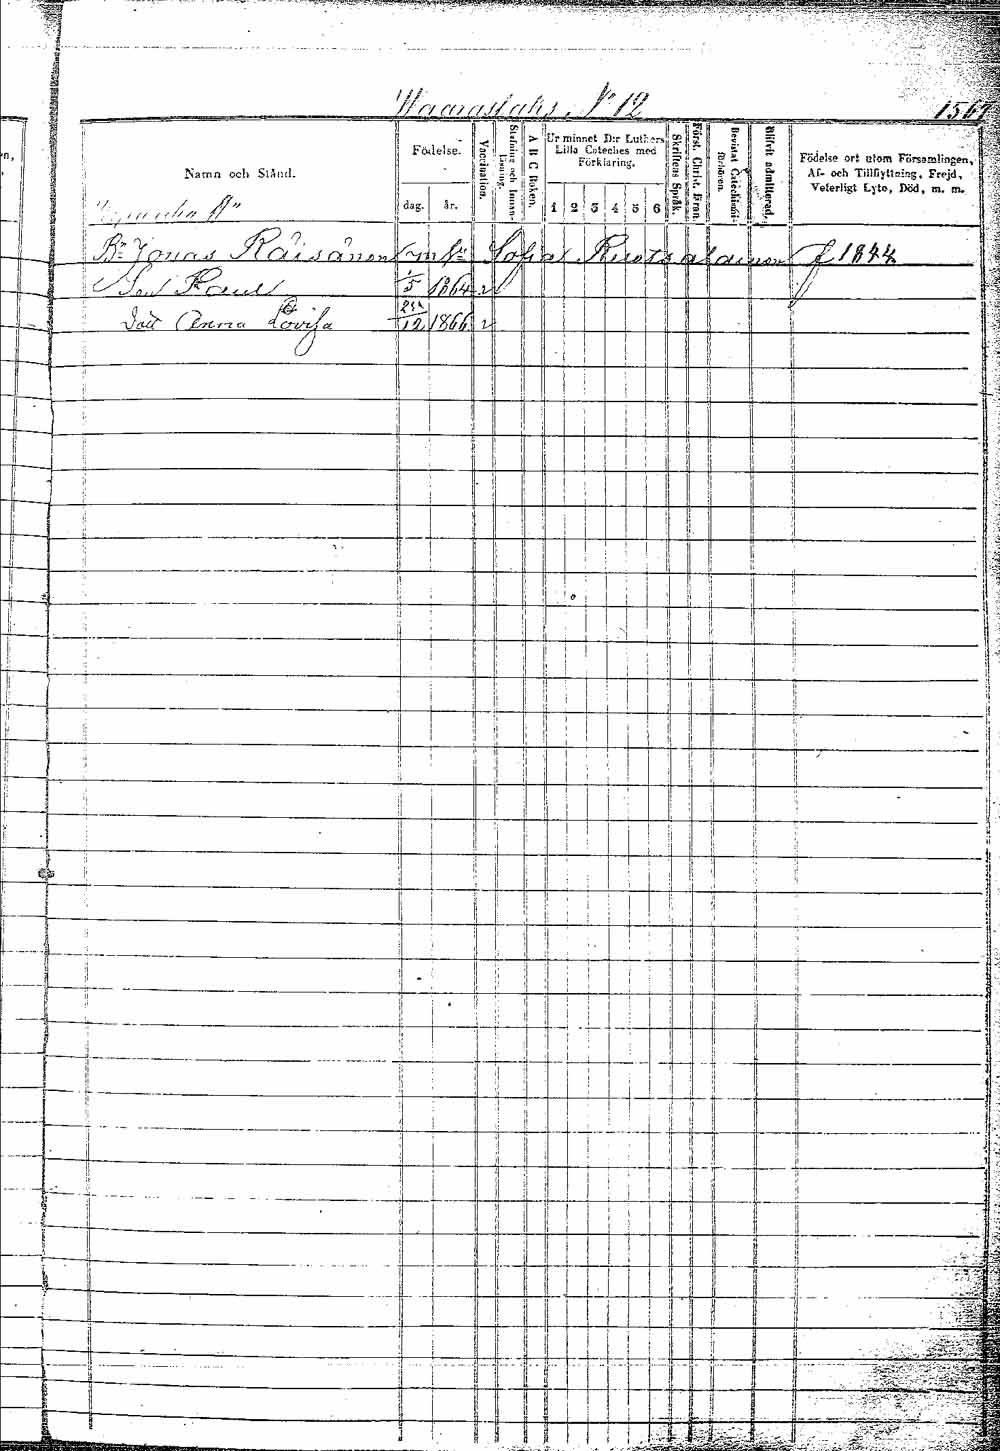 N° 12
1567
Namn och Stånd.
Födelse.
dag.
år.
Vaccination.
Stafning och Innan-
läsning.
A B C Boken.
Ur minnet D:r Luthers
Lilla Cateches med
Förklaring.
1 2 3 4 5 6
Skriftens Språk.
Först. Christ. läran.
Bevistat Catechismi-
förhören.
Blifvit admitterad.
Födelse ort utom Församlingen,
Af- och Tillflyttning, Frejd,
Veterligt Lyte, Död, m. m.
B:n Jonas Räisänen Sofia f 1844
Son Paul 1/5 1864 v
Dott Anna Lovisa 12 1866 v